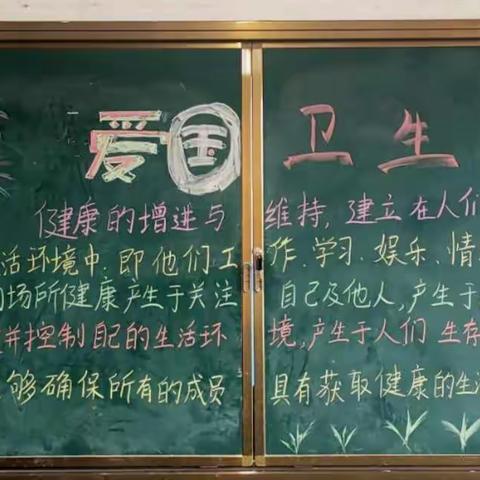 爱国卫生
健康的增进与维持，建立在人们
活环境中，即他们工作、学习、娱乐、情
场所健康产生于关注自己及他人，产生于
并控制自己的生活环境，产生于人们生存
够确保所有的成员具有获取健康的生活